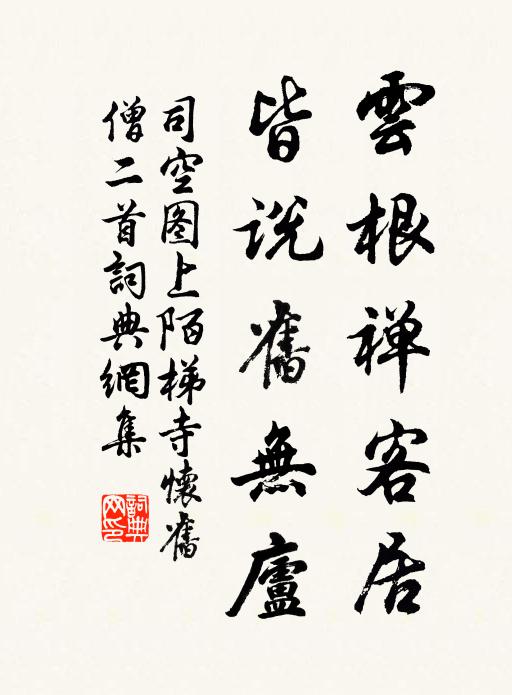 雲根禅客居
皆説舊無廬
司空图上陌梯寺懷舊
僧二首詞典網集
詞典
网印